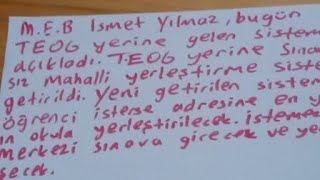 M.E.B İsmet Yılmaz, bugün
TEOG yerine gelen sistem
açıkladı. TEOG yerine Sınav
sız Mahalli yerleştirme siste
getirildi. Yeni getirilen sistem
öğrenci isterse adresine en y
ın okula yerleştirilecek. İstemez
Merkezi sınava girecek ve ye
şecek.